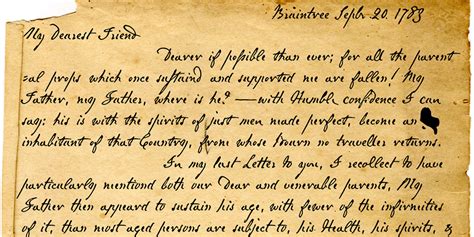 Braintree Sepbr 20. 1783
My Dearest Friend
Dearer if possible than ever; for all the parent
-al props which once sustaind and supported me are fallen! My
Father, my Father, where is he? — with Humble confidence I can
say; his is with the spirits of just men made perfect, become an
inhabitant of that Country, from whose Bourn no traveller returns.
In my last Letter to you, I recollect to have
particularly mentiond both our Dear and venerable parents, My
Father then appeard to sustain his age, with fewer of the infirmities
of it, than most aged persons are subject to, his Health, his spirits, &